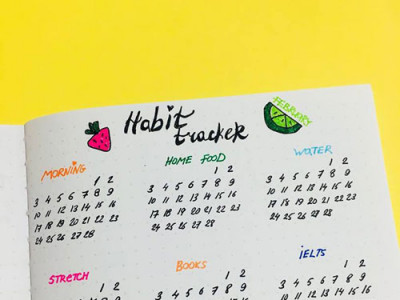 Habit
tracker
FEBRUARY
MORNING
1 2
3 4 5 6 7 8 9
10 11 12 13 14 15 16
17 18 19 20 21 22 23
24 25 26 27 28
HOME FOOD
1 2
3 4 5 6 7 8 9
10 11 12 13 14 15 16
17 18 19 20 21 22 23
24 25 26 27 28
WATER
1 2
3 4 5 6 7 8 9
10 11 12 13 14 15 16
17 18 19 20 21 22 23
24 25 26 27 28
STRETCH
1 2
BOOKS
1 2
3 4 5 6 7 8 9
IELTS
1 2
3 4 5 6 7 8 9